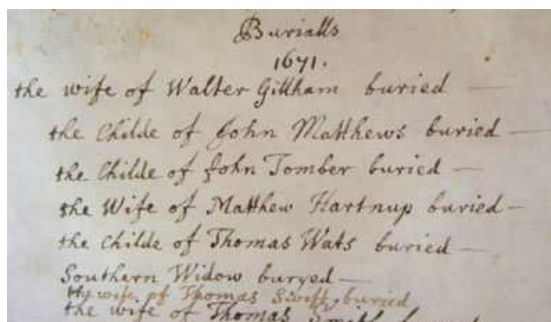 Burialls
1671.
the wife of Walter Gillham buried —
the Childe of John Matthews buried —
the Childe of John Tomber buried —
the Wife of Matthew Hartnup buried —
the Childe of Thomas Wats buried —
Southern Widow buryed —
wife of Thomas Swift buried
the wife of Thomas Smith